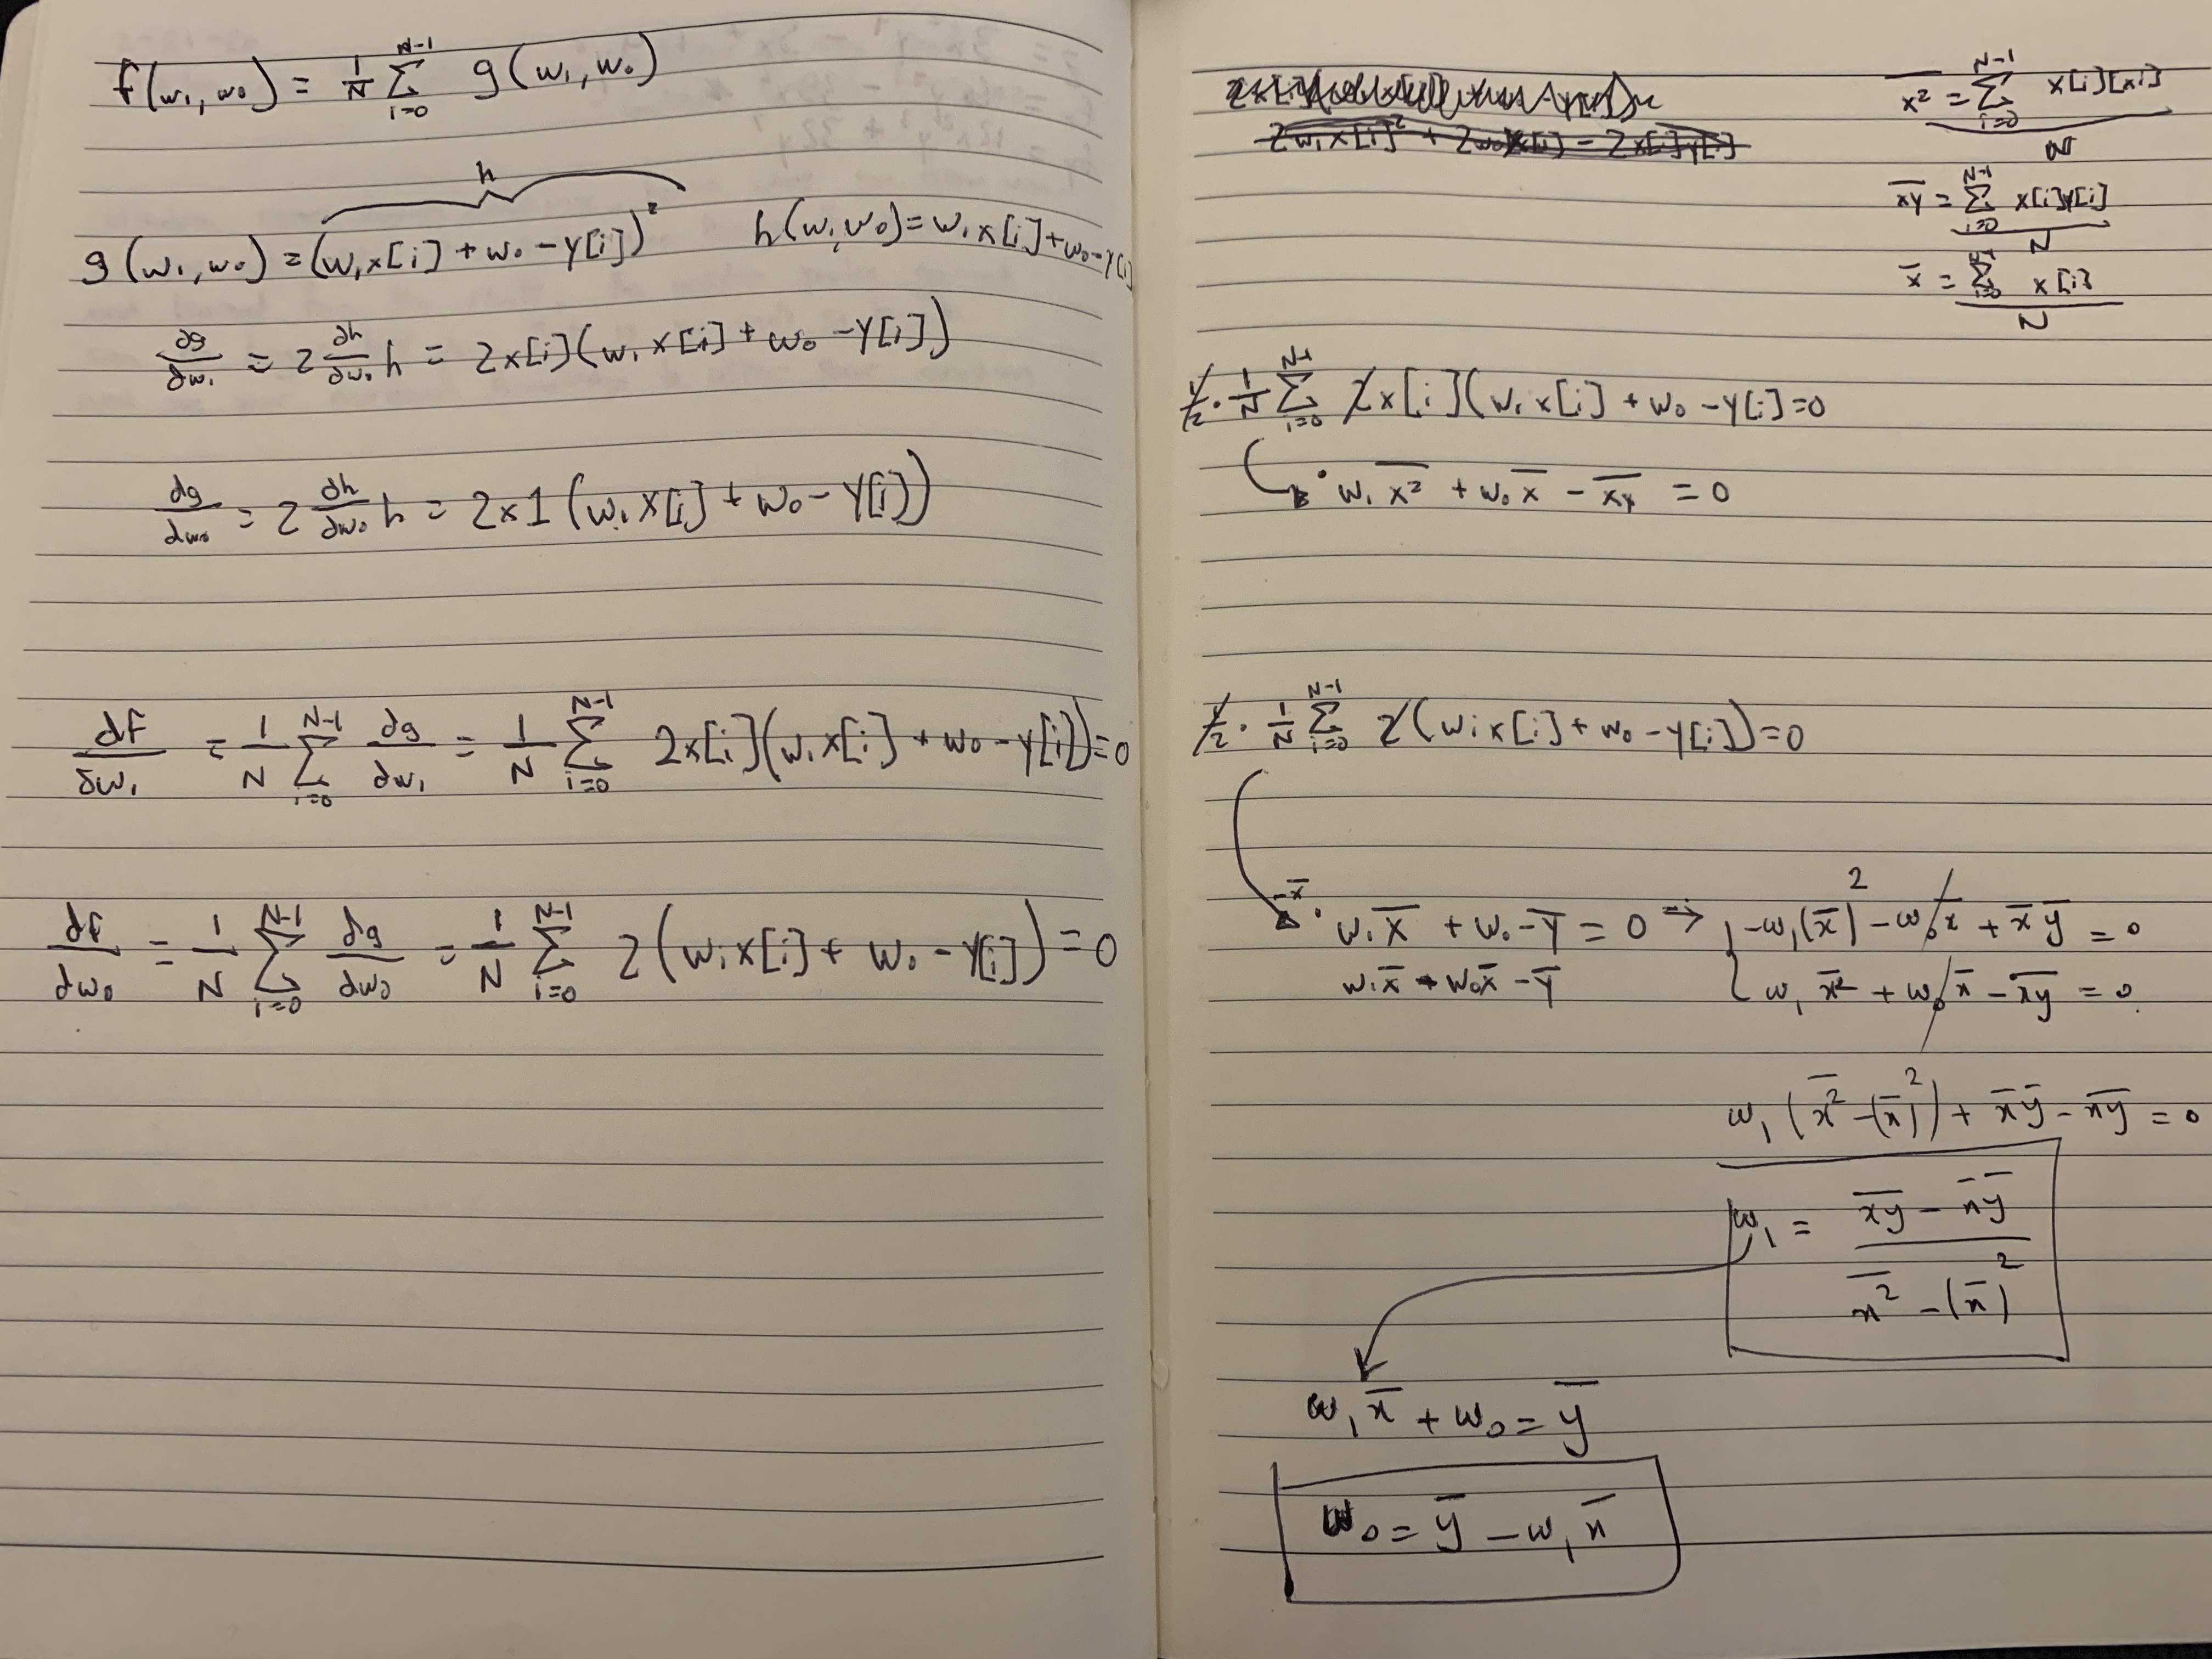 f(w₁, w₀) = 1/N Σ_{i=0}^{N-1} g(w₁, w₀)
h
g(w₁, w₀) = (w₁x[i] + w₀ - y[i])² h(w₁, w₀) = w₁x[i] + w₀ - y[i]
∂g/∂w₁ = 2 ∂h/∂w₀ h = 2x[i](w₁x[i] + w₀ - y[i])
∂g/∂w₀ = 2 ∂h/∂w₀ h = 2x1(w₁x[i] + w₀ - y[i])
∂f/∂w₁ = 1/N Σ_{i=0}^{N-1} ∂g/∂w₁ = 1/N Σ_{i=0}^{N-1} 2x[i](w₁x[i] + w₀ - y[i]) = 0
∂f/∂w₀ = 1/N Σ_{i=0}^{N-1} ∂g/∂w₀ = 1/N Σ_{i=0}^{N-1} 2(w₁x[i] + w₀ - y[i]) = 0
2w₁x[i]² + 2w₀x[i] - 2x[i]y[i]
x̅²̅ = Σ_{i=0}^{N-1} x[i][xi] / N
x̅y̅ = Σ_{i=0}^{N-1} x[i]y[i] / N
x̅ = Σ_{i=0}^{N-1} x[i] / N
1/2 · 1/N Σ_{i=0}^{N-1} 2x[i](w₁x[i] + w₀ - y[i] = 0
· w₁ x̅²̅ + w₀ x̅ - x̅y̅ = 0
1/2 · 1/N Σ_{i=0}^{N-1} 2(w₁x[i] + w₀ - y[i]) = 0
-x̅ · w₁x̅ + w₀ - y̅ = 0 => { -w₁(x̅)² - w₀x̅ + x̅ y̅ = 0
w₁x̅ + w₀x̅ - y̅ w₁ x̅²̅ + w₀x̅ - x̅y̅ = 0
w₁(x̅²̅ - (x̅)²) + x̅ y̅ - x̅y̅ = 0
w₁ = x̅y̅ - x̅ y̅ / x̅²̅ - (x̅)²
w₁x̅ + w₀ = y̅
w₀ = y̅ - w₁x̅